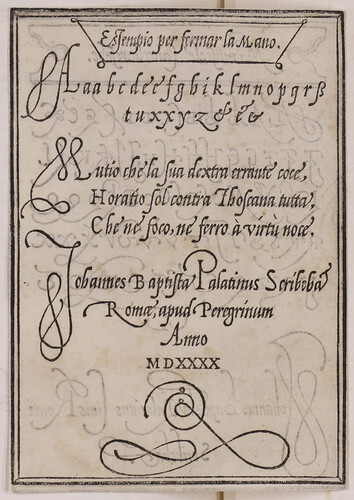 Essempio per fermar la Mano.
A a b c d e e f g h i k l m n o p q r s ß
t u x x y z & &
Mutio che la sua dextra errante coce,
Horatio sol contra Thoscana tutta,
Che ne foco, ne ferro à virtù noce.
Iohannes Baptista Palatinus Scribebat
Romæ, apud Peregrinum
Anno
MDXXXX